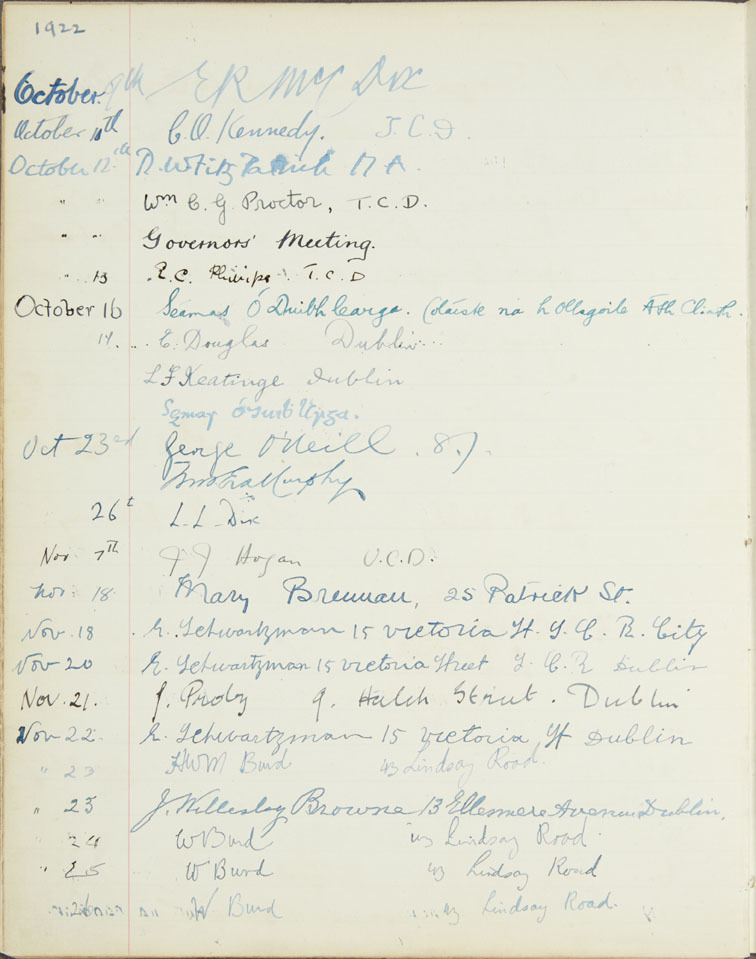 1922
October 9th E R McC Dix
October 10th C. O. Kennedy. T. C. D.
October 12th R. W. FitzPatrick M A.
" " Wm C. G. Proctor, T. C. D.
" " Governors' Meeting.
" 13 R. C. Phillips. T. C. D
October 16 Séamas Ó Duibhlearga. Coláiste na h Ollsgoile Áth Cliath.
E. Douglas Dublin
L F Keatinge Dublin
Séamas
Oct 23rd George O'Neill. S. J.
Murphy
26t L. L. Dix
Nov 7th J J Hogan U. C. D.
Nov. 18. Mary Brennan, 25 Patrick St.
Nov. 18 E. Schwartzman 15 Victoria St. S. C. R. City
Nov 20 E. Schwartzman 15 Victoria Street S. C. R Dublin
Nov. 21. J. Proby 9. Hatch Street. Dublin
Nov 22. E. Schwartzman 15 Victoria St Dublin
" 23 Burd 43 Lindsay Road.
" 23 J. Wellesley Browne 13 Ellesmere Avenue Dublin.
24 W Burd 43 Lindsay Road
" 25 W Burd 43 Lindsay Road
26 W Burd 43 Lindsay Road.